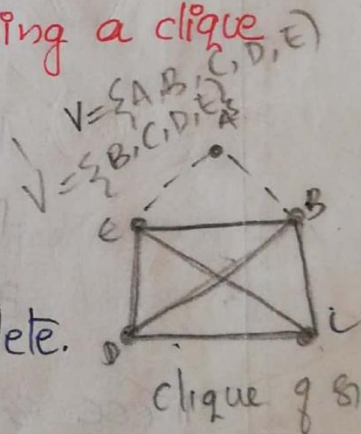 ing a clique
V={A,B,C,D,E}
V={B,C,D,E}
A
E B
ete.
D C
clique of si